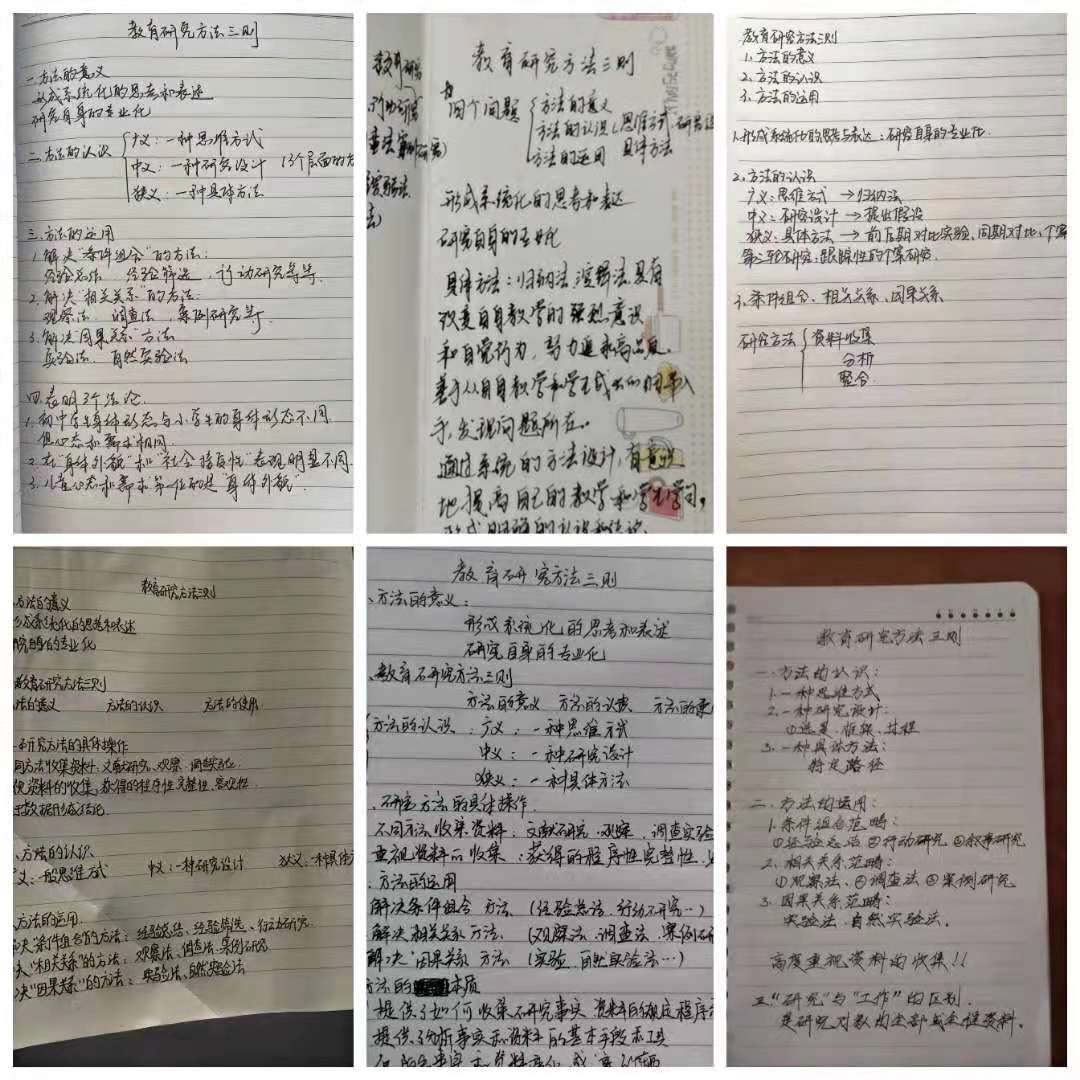 教育研究方法三则
一.方法的意义
形成系统化的思考和表述
研究自身的专业化
二.方法的认识
广义:一种思维方式
中义:一种研究设计
狭义:一种具体方法
三.方法的运用
1.解决"条件组合"的方法:
经验总结、经验筛选、行动研究等等
2.解决"相关关系"的方法:
观察法、调查法、案例研究等
3.解决"因果关系"方法
实验法、自然实验法
四.表明3个结论
1.初中学生身体形态与小学生的身体形态不同
但心态和需求相同.
2.在"身体外貌"和"社会特质性"表现明显不同.
3.儿童心态和需求第一位的是"身体外貌".
教育研究方法三则
四个问题
方法的意义
方法的认识 思维方式
方法的运用 具体方法
形成系统化的思考和表达
研究自身的专业化
具体方法:归纳法、演绎法、具有
改变自身教学的强烈意识
和自觉行为,努力追求高品质.
善于从自身教学和学生成长的
手,发现问题所在。
通过系统的方法设计,有意识
地提高自己的教学和学生学习,
教育研究方法三则
1.方法的意义
2.方法的认识
3.方法的运用
1.形成系统化的思考与表达:研究自身的专业化.
2.方法的认识
广义:思维方式 → 归纳法
中义:研究设计 → 提出假设
狭义:具体方法 → 前后期对比实验、同期对比、个案
第二轮研究:跟踪性的个案研究.
3.条件组合、相关关系、因果关系
研究方法
资料收集
分析
整合
教育研究方法三则
方法的意义
形成系统化的思考和表述
究自身的专业化
教育研究方法三则
法的意义 方法的认识 方法的使用
研究方法的具体操作
同方法收集资料:文献研究、观察、调查实验
视资料的收集:获得的程序性、完整性、客观性.
方法的认识
义:一般思维方式 中义:一种研究设计 狭义:一种具体方
方法的运用
决"条件组合"的方法:经验总结、经验筛选、行动研究
"相关关系"的方法:观察法、调查法、案例研究
决"因果关系"的方法:实验法、自然实验法
教育研究方法三则
方法的意义:
形成系统化的思考和表述
研究自身的专业化
教育研究方法三则
方法的意义 方法的认识 方法的使
方法的认识:广义:一种思维方式
中义:一种研究设计
狭义:一种具体方法
研究方法的具体操作.
不同方法收集资料:文献研究、观察、调查实验
重视资料的收集:获得的程序性完整性、
方法的运用
解决条件组合方法(经验总结、行动研究…)
解决相关关系方法(观察法、调查法、案例研
解决"因果关系"方法(实验、自然实验法…)
方法的本质
提供了如何收集研究事实、资料的规定程序
提供了分析事实和资料的基本手段和工具
教育研究方法三则
一、方法的认识:
1.一种思维方式
2.一种研究设计:
①远景、框架、过程
3.一种具体方法:
特定路径
二、方法的运用:
1.条件组合范畴:
①经验总结 ②行动研究 ③叙事研究
2.相关关系范畴:
①观察法、②调查法 ③案例研究
3.因果关系范畴:
实验法、自然实验法.
高度重视资料的收集!!
三."研究"与"工作"的区别.
是研究对象的全部或全程资料.